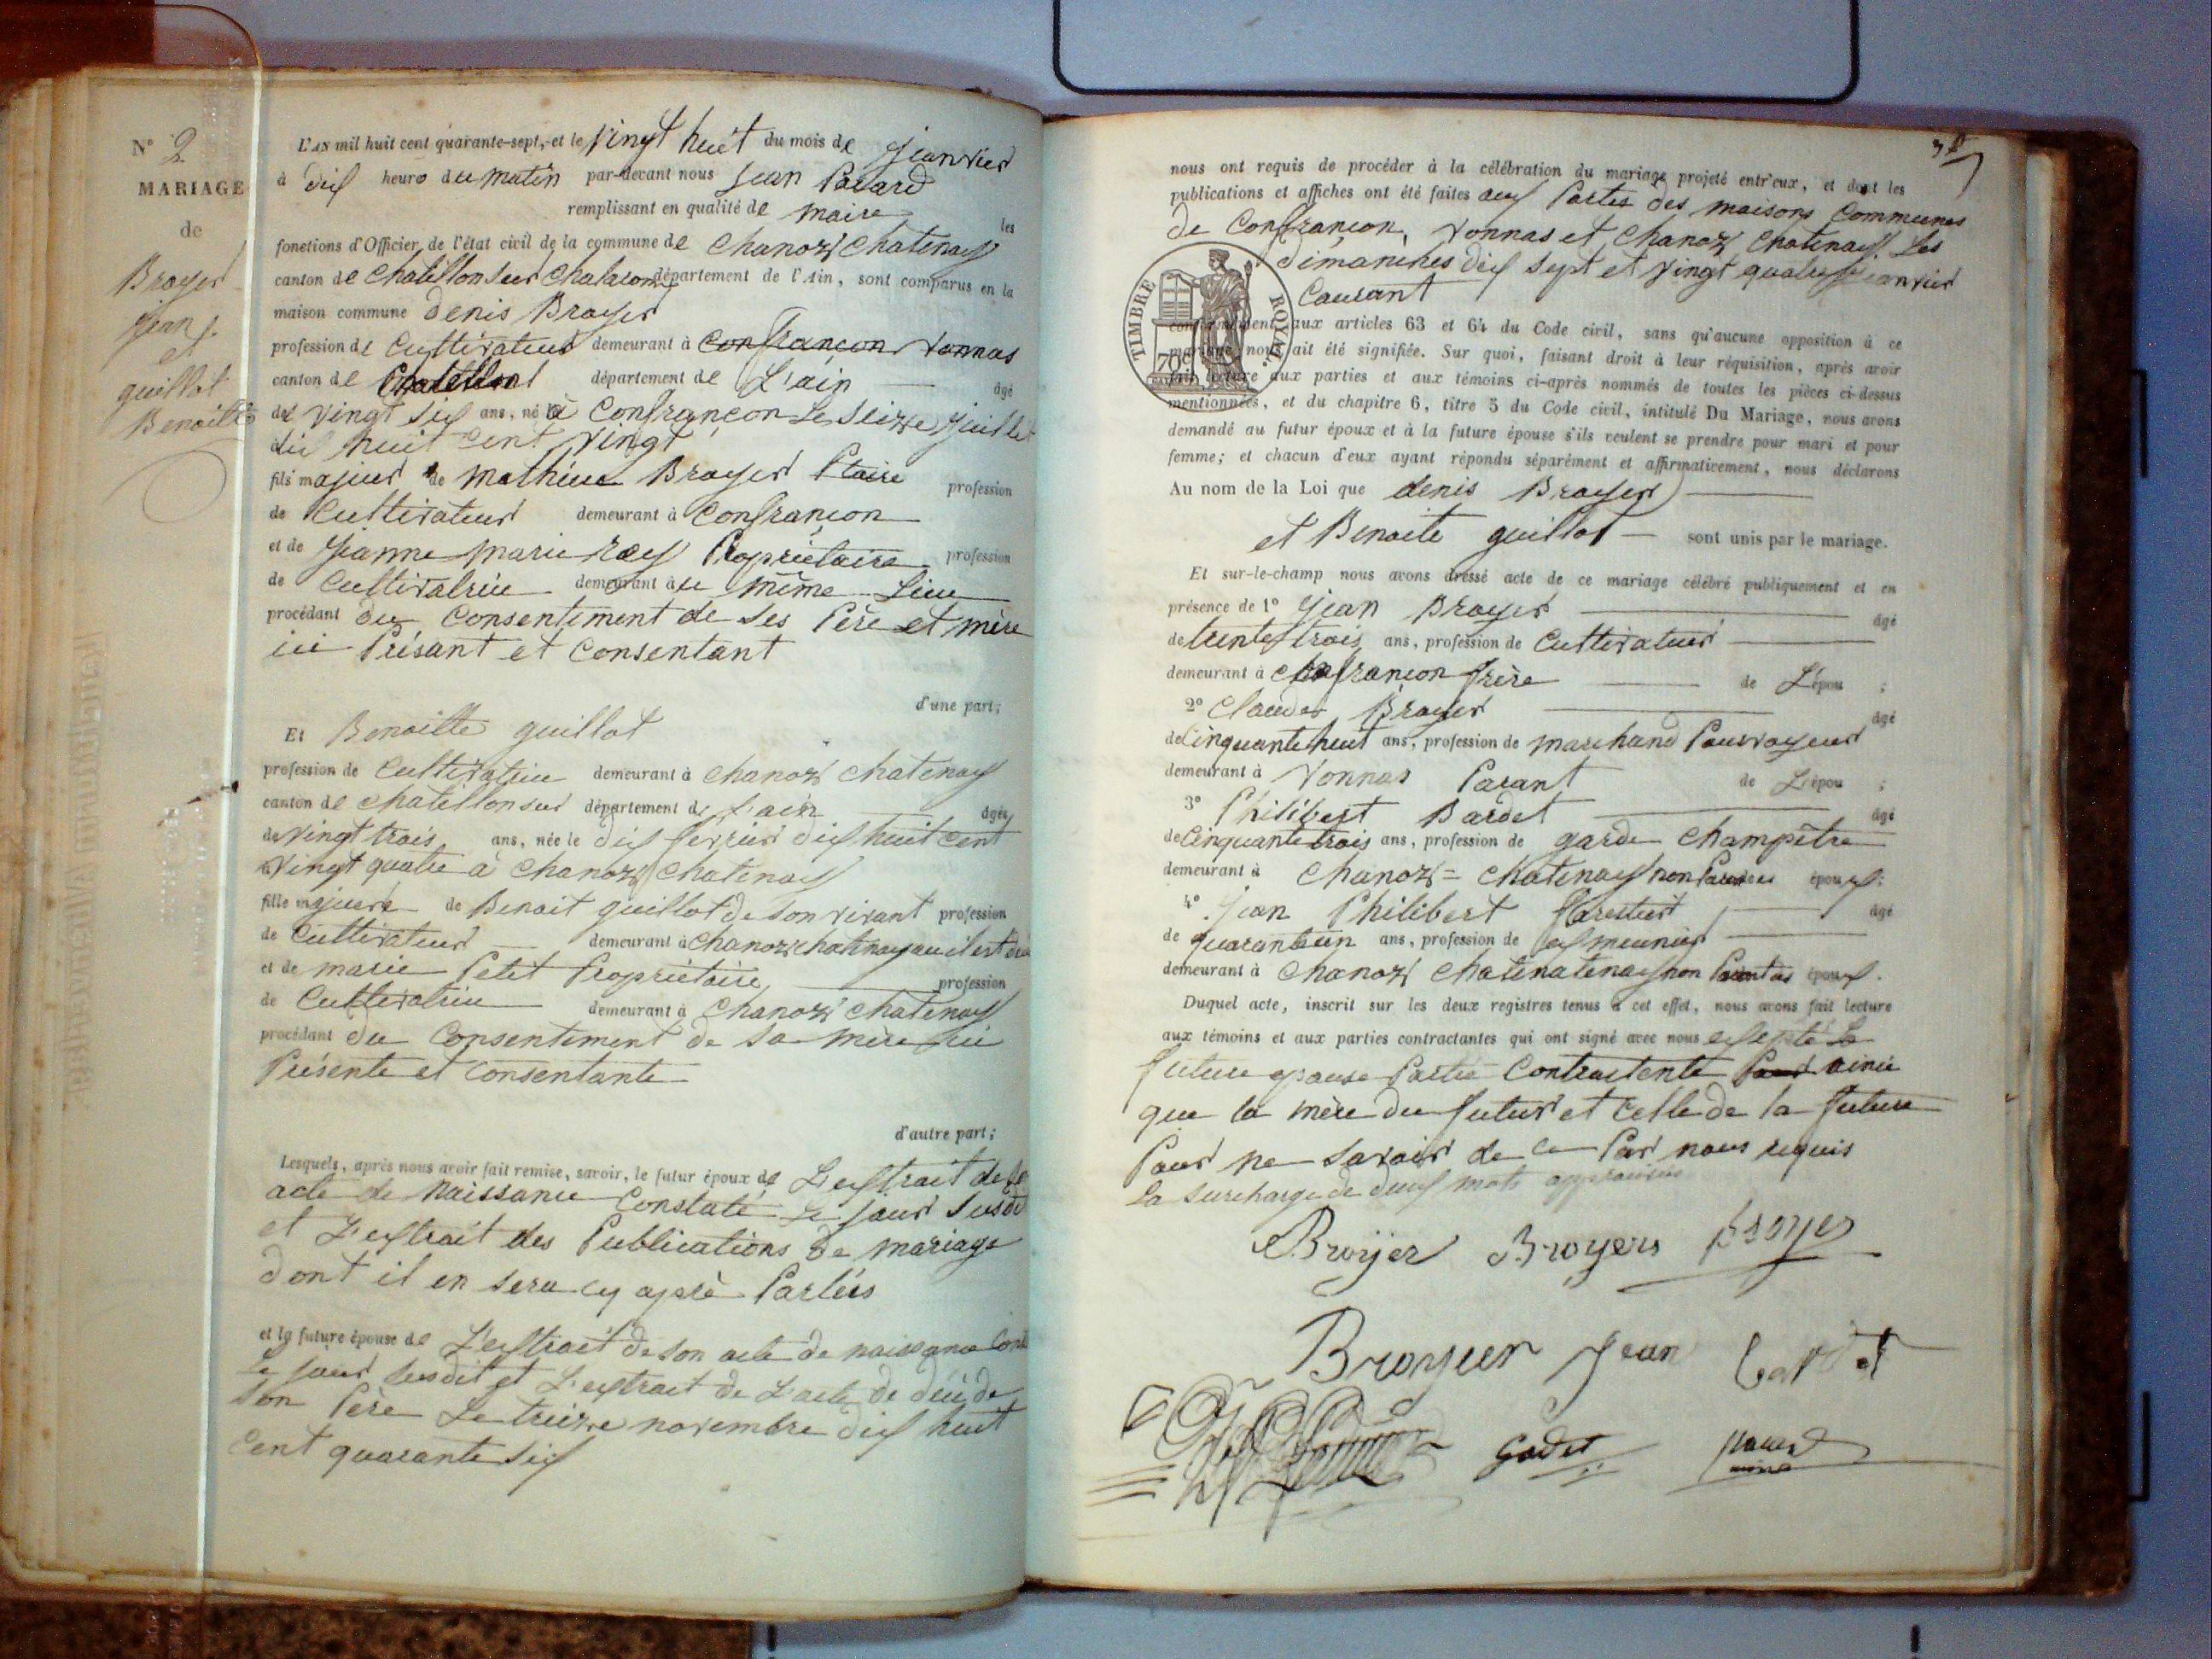 N° 2
MARIAGE
de
Broyer
jean
et
guillot
Benoitte
L'AN mil huit cent quarante-sept, et le vingt huit du mois de Jeanvier
à dix heure du matin par-devant nous jean Pavard
remplissant en qualité de maire les
fonctions d'Officier de l'état civil de la commune de chanoz chatenay
canton de chatillon sur chalaronne département de l'Ain, sont comparus en la
maison commune denis Broyer
profession de cultivateur demeurant à confrançon vonnas
canton de chatillon département de L'ain âgé
de vingt six ans, né à confrançon Le seizze juillet
dix huit cent vingt
fils majeur de mathieu Broyer Ptaire profession
de cultivateur demeurant à confrançon
et de jeanne marie rey Propriétaire profession
de cultivatrice demeurant au même Lieu
procédant du consentement de ses Père et mère
ici Présant et consentant
d'une part;
Et Benoitte guillot
profession de cultivatrice demeurant à chanoz chatenay
canton de chatillon sur département de L'ain âgée
de vingt trois ans, née le dix fevrier dix huit cent
vingt quatre à chanoz chatenay
fille majeure de Benoit guillot de son vivant profession
de cultivateur demeurant à chanoz chatenay ou il est
et de marie Petit Propriétaire profession
de cultivatrice demeurant à chanoz chatenay
procédant du consentement de sa mère ici
Présente et consentante
d'autre part;
Lesquels, après nous avoir fait remise, savoir, le futur époux de L'extrait de
acte de naissance constaté Le jour susdit
et L'extrait des Publications de mariage
dont il en sera cy aprè Parlés
et la future épouse de L'extrait de son acte de naissance
Le jour susdit et L'extrait de L'acte de décè de
son Père Le treizze novembre dix huit
cent quarante six
nous ont requis de procéder à la célébration du mariage projeté entr'eux, et dont les
publications et affiches ont été faites aux Portes des maisons communes
de confrançon, vonnas et chanoz chatenay Les
dimanches dix sept et vingt quatre jeanvier
courant
TIMBRE ROYAL
conformément aux articles 63 et 64 du Code civil, sans qu'aucune opposition à ce
mariage nous ait été signifiée. Sur quoi, faisant droit à leur réquisition, après avoir
fait lecture aux parties et aux témoins ci-après nommés de toutes les pièces ci-dessus
mentionnées, et du chapitre 6, titre 5 du Code civil, intitulé Du Mariage, nous avons
demandé au futur époux et à la future épouse s'ils veulent se prendre pour mari et pour
femme; et chacun d'eux ayant répondu séparément et affirmativement, nous déclarons
Au nom de la Loi que denis Broyer
et Benoite guillot sont unis par le mariage.
Et sur-le-champ nous avons dressé acte de ce mariage célébré publiquement et en
présence de 1° jean Broyer âgé
de trente trois ans, profession de cultivateur
demeurant à confrançon frère de L'épou ;
2° Claude Broyer âgé
de cinquante huit ans, profession de marchand Pourvoyeur
demeurant à vonnas Parant de L'épou ;
3° Philibert Bardet âgé
de cinquante trois ans, profession de garde champêtre
demeurant à chanoz = chatenay non Parent des époux;
4° jean Philibert forestier âgé
de quarante un ans, profession de meunier
demeurant à chanoz chatenatenay non Parent des époux.
Duquel acte, inscrit sur les deux registres tenus à cet effet, nous avons fait lecture
aux témoins et aux parties contractantes qui ont signé avec nous excepté la
future epouse Partie contractente ainci
que la mère du futur et celle de la future
Pour ne savoir de ce Par nous requis
la surcharge de deux mots approuvés
Broyer Broyers Broyer
Broyer Jean bardet
Godet Pavard
maire